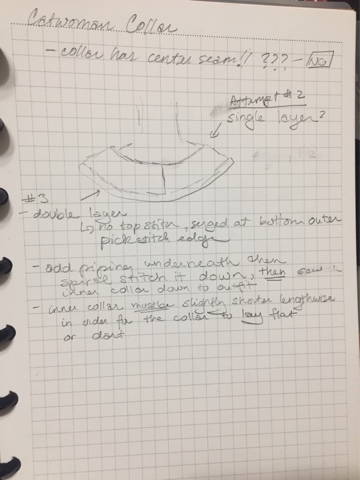 Catwoman Collar
- collar has center seam!! ??? - No
Attempt #2
single layer?
#3
- double layer
↳ no top stitch, serged at bottom outer
pickstitch edges
- add piping underneath then
stitch it down, then sew
inner collar down to outfit
- inner collar slightly shorter lengthwise
in order for the collar to lay flat
or dont